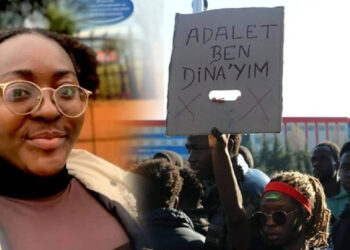 ADALET
BEN
DİNA'YIM
X X